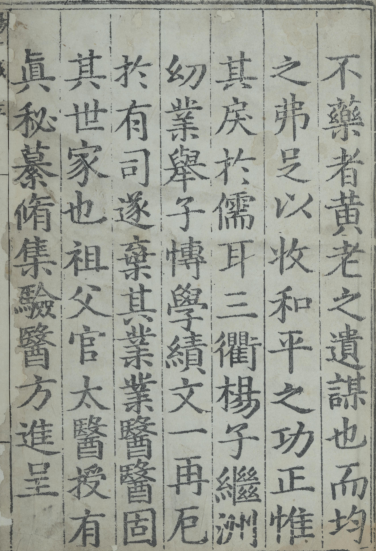 不藥者黄老之遺謀也而均
之弗足以收和平之功正惟
其戾於儒耳三衢楊子繼洲
幼業舉子愽學績文一再厄
於有司遂棄其業業醫醫固
其世家也祖父官太醫授有
眞秘纂脩集驗醫方進呈